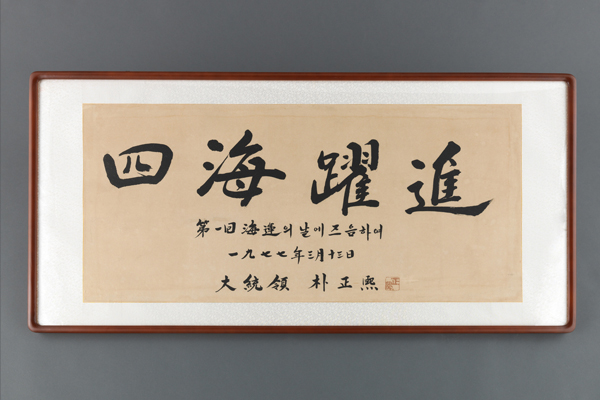 四海躍進
第一回 海運의 날에 즈음하여
一九七七年三月十三日
大統領 朴正熙